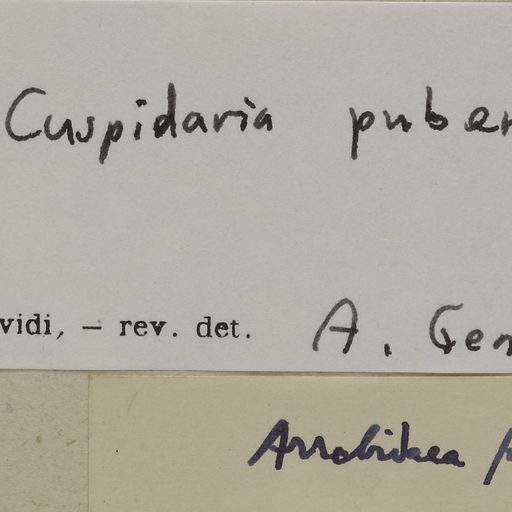 Cuspidaria puber
vidi, — rev. det. A. Gen
Arrabidaea p